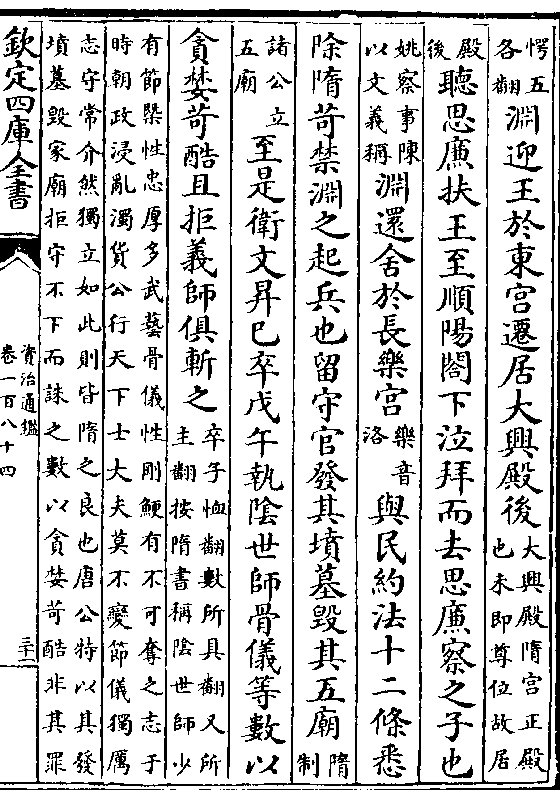 愕五各翻淵迎王於東宮遷居大興殿後大興殿隋宮正殿也未即尊位故居
殿後聽思廉扶王至順陽閤下泣拜而去思廉察之子也
姚察事陳以文義稱淵還舍於長樂宮樂音洛與民約法十二條悉
除隋苛禁淵之起兵也留守官發其墳墓毀其五廟隋制
諸公立五廟至是衛文昇已卒戊午執陰世師骨儀等數以
貪婪苛酷且拒義師俱斬之卒子恤翻數所具翻又所主翻按隋書稱陰世師少
有節槩性忠厚多武藝骨儀性剛鯁有不可奪之志于
時朝政浸亂濁貨公行天下士大夫莫不變節儀獨厲
志守常介然獨立如此則皆隋之良也唐公特以其發
墳墓毀家廟拒守不下而誅之數以貪婪苛酷非其罪
欽定四庫全書
資治通鑑
卷一百八十四